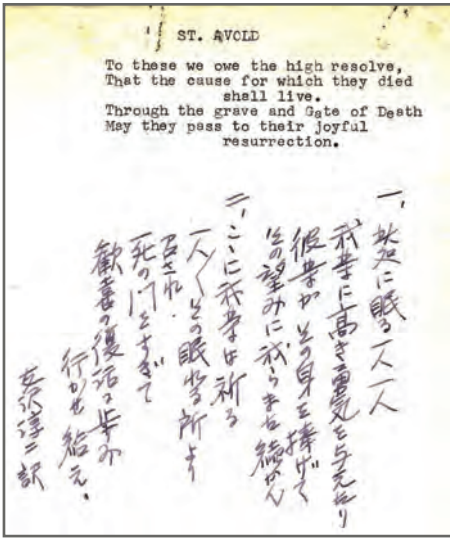 ST. AVOLD
To these we owe the high resolve,
That the cause for which they died
shall live.
Through the grave and Gate of Death
May they pass to their joyful
resurrection.
一、 に眠る一人一人
我等に高き勇気を与えたり
彼等がその身を捧げて
その望みに我らまた続かん
二、こゝに我等は祈る
一人／＼その眠れる所より
召され、
死の門をすぎて
歓喜の復活に歩み
行かせ給え。
淳二訳